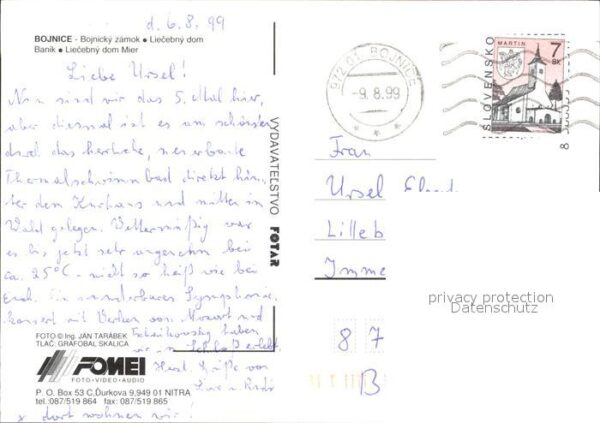 d. 6.8.99
BOJNICE - Bojnický zámok • Liečebný dom
Baník • Liečebný dom Mier
Liebe Ursel!
Nun sind wir das 5. Mal hier,
aber diesmal ist es am schönsten
durch das herrliche, neuerbaute
Thermalschwimmbad direkt hin-
ter dem Kurhaus und mitten im
Wald gelegen. Wettermäßig war
es bis jetzt sehr angenehm bei
ca. 25°C - nicht so heiß wie bei
Euch. Ein wunderbares Symphonie-
konzert mit Werken von Mozart und
Tchaikovsky haben
wir im Schloß erlebt.
Herzl. Grüße von
x dort wohnen wir!
FOTO © Ing. JÁN TARÁBEK
TLAČ: GRAFOBAL SKALICA
FOMEI
FOTO·VIDEO·AUDIO
P. O. Box 53 C, Ďurkova 9, 949 01 NITRA
tel: 087/519 864 fax: 087/519 865
VYDAVATEĽSTVO FOTAR
972 01 BOJNICE
-9.8.99
SLOVENSKO
MARTIN
7
SK
Frau
Ursel
Lilleb
Imme
8 7
B
privacy protection
Datenschutz